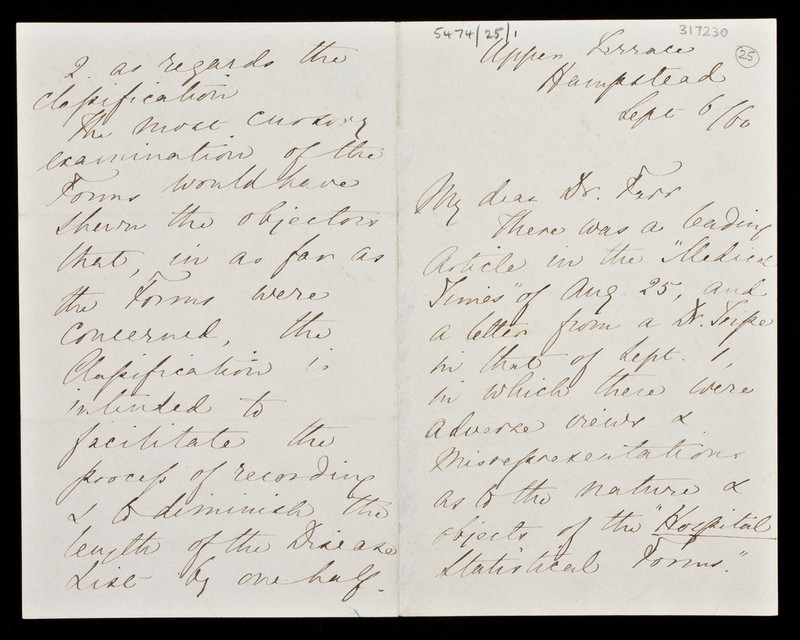 5474/25/1
317230
25
Upper Terrace
Hampstead
Sept 6/60
My dear Dr. Farr
There was a leading
Article in the "Medical
Times" of Aug. 25, and
a letter from a Dr. Tripe
in that of Sept. 1,
in which there were
adverse views &
misrepresentations
as to the nature &
objects of the "Hospital
Statistical Forms."
2. as regards the
classification
The most cursory
examination of the
Forms would have
shewn the objectors
that, in as far as
the Forms were
concerned, the
Classification is
intended to
facilitate the
process of recording
& to diminish the
length of the Disease
List by one half.